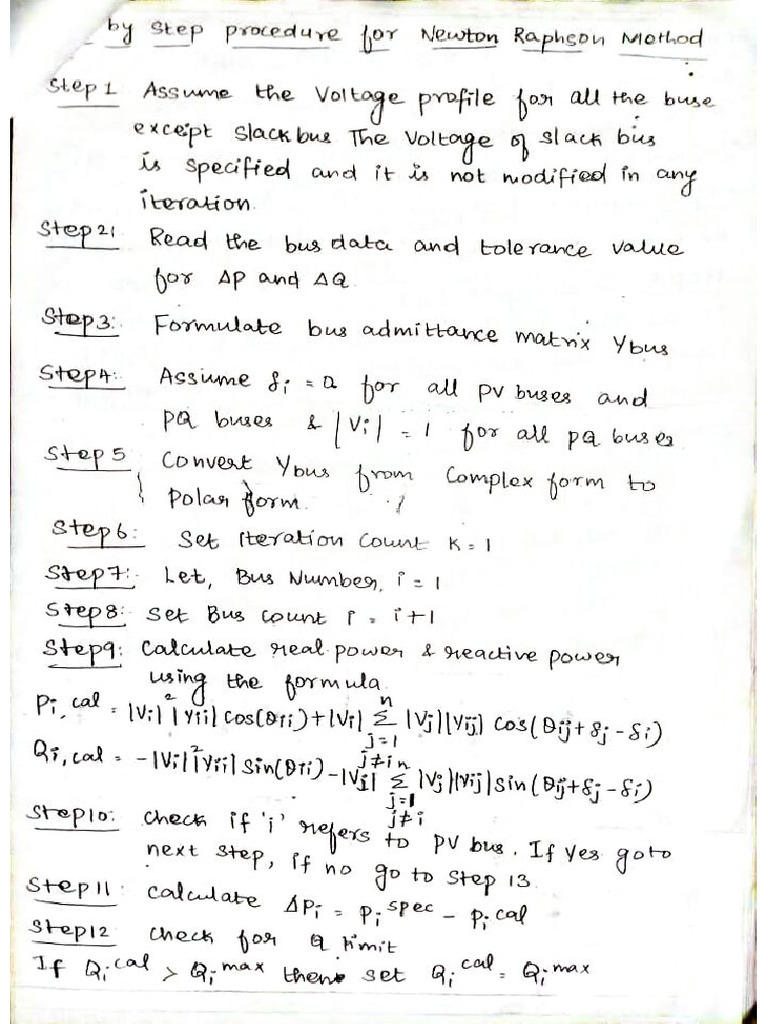 by step procedure for Newton Raphson Method
Step 1 Assume the Voltage profile for all the buse
except slack bus The Voltage of slack bus
is specified and it is not modified in any
iteration.
Step 2: Read the bus data and tolerance value
for ΔP and ΔQ
Step 3: Formulate bus admittance matrix Ybus
Step 4: Assume δi = 0 for all PV buses and
PQ buses & |Vi| = 1 for all PQ buses
Step 5 Convert Ybus from Complex form to
Polar form.
Step 6: Set Iteration Count K = 1
Step 7: Let, Bus Number, i = 1
Step 8: Set Bus count i = i+1
Step 9: Calculate real power & reactive power
using the formula
Pi,cal = |Vi|² |Yii| cos(θii) + |Vi| Σ |Vj||Yij| cos(θij + δj - δi)
n
j=1
j≠i
Qi,cal = -|Vi|²|Yii| sin(θii) - |Vi| Σ |Vj||Yij| sin(θij + δj - δi)
n
j=1
j≠i
Step 10: check if 'i' refers to PV bus. If Yes goto
next step, if no go to step 13
Step 11: calculate ΔPi = Pi^spec - Pi^cal
Step 12 check for Q limit
If Qi^cal > Qi^max then set Qi^cal = Qi^max